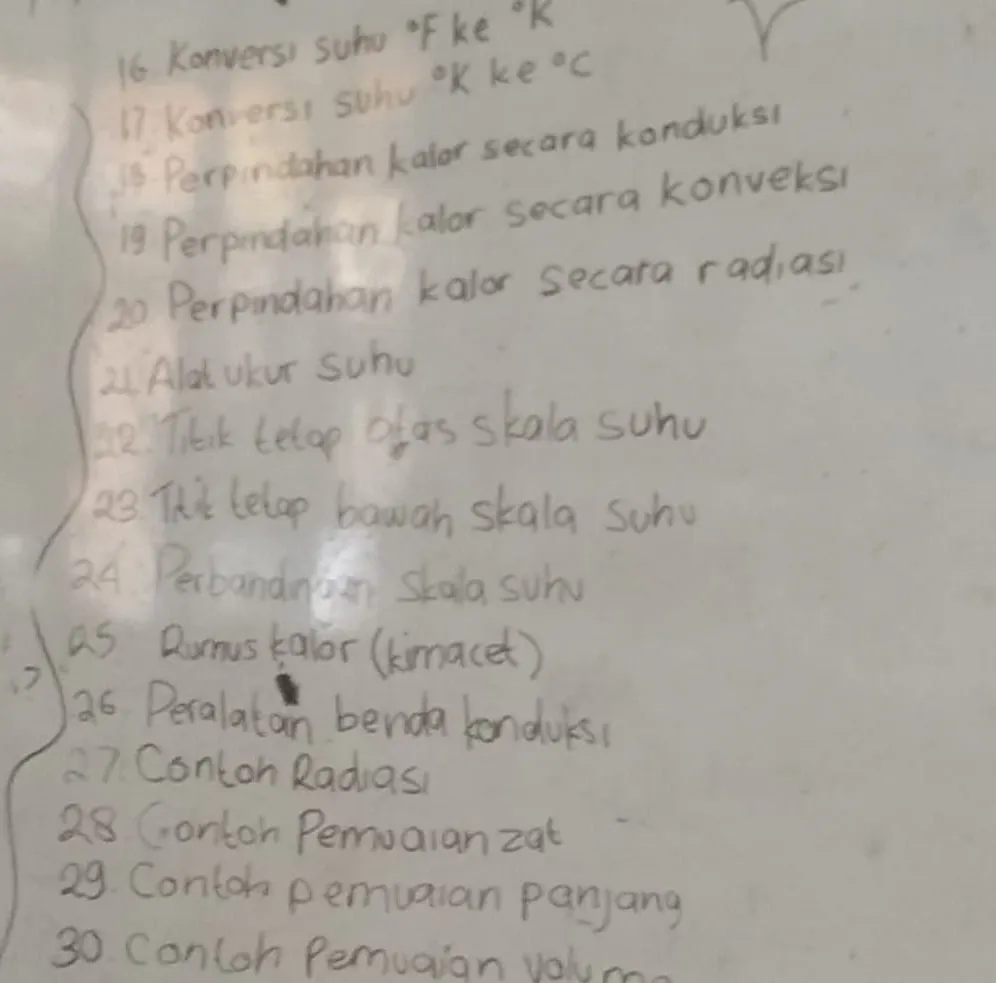 16. Konversi suhu °F ke °K
17. Konversi suhu °K ke °C
18. Perpindahan kalor secara konduksi
19. Perpindahan kalor secara konveksi
20. Perpindahan kalor secara radiasi
21. Alat ukur suhu
22. Titik tetap atas skala suhu
23. Titik tetap bawah skala suhu
24. Perbandingan skala suhu
25. Rumus kalor (kimacet)
26. Peralatan benda konduksi
27. Contoh Radiasi
28. Contoh Pemuaian zat
29. Contoh pemuaian panjang
30. Contoh Pemuaian volume